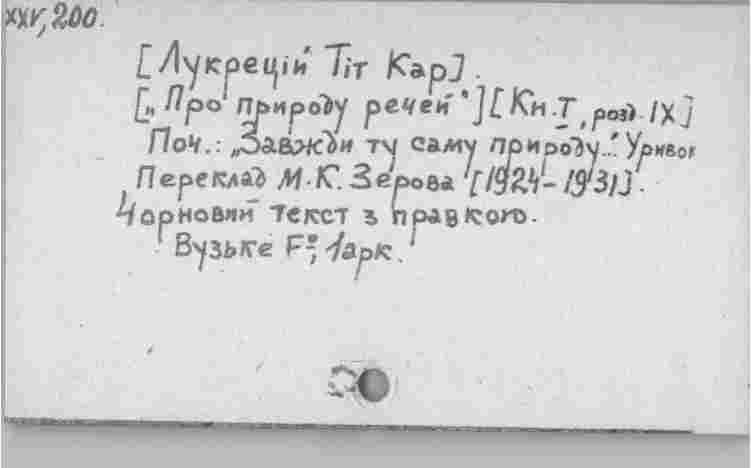 XXV, 200.
[Лукрецій Тіт Кар].
[„Про природу речей“] [Кн. I, розд. IX]
Поч.: „Завжди ту саму природу...“ Уривок
Переклад М.К. Зерова [1924-1931].
Чорновий текст з правкою.
Вузьке F°, 1 арк.